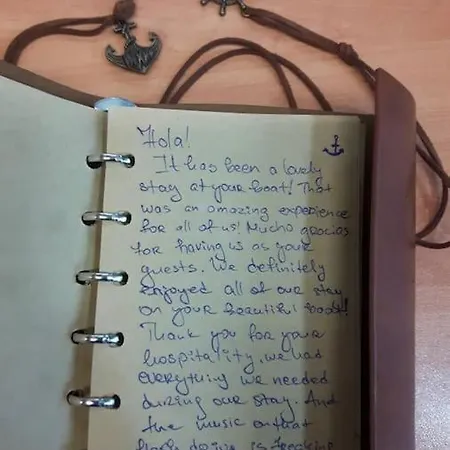 Hola!
It has been a lovely
stay at your boat! That
was an amazing experience
for all of us! Mucho gracias
for having us as your
guests. We definitely
enjoyed all of our stay
on your beautiful boat!
Thank you for your
hospitality, we had
everything we needed
during our stay. And
the music on that
flash drive is